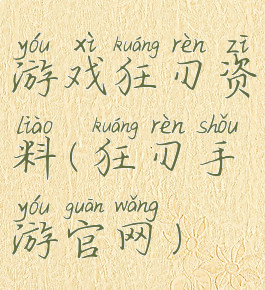 yóu xì kuáng rèn zī
游戏狂刃资
liào kuáng rèn shǒu
料(狂刃手
yóu guān wǎng
游官网)